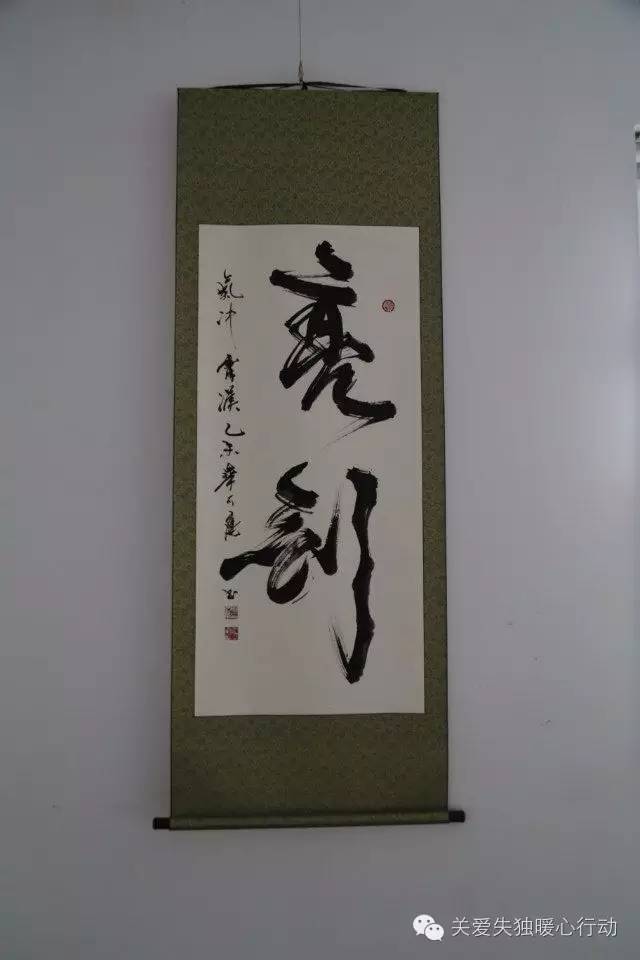 亮剑
氣冲霄漢 乙未 书
关爱失独暖心行动